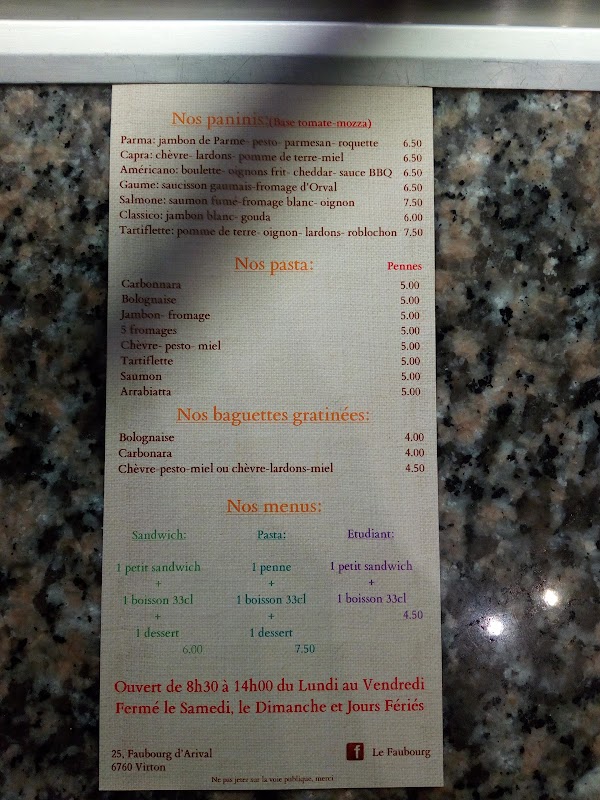 Nos paninis:(Base tomate-mozza)
Parma: jambon de Parme- pesto- parmesan- roquette 6.50
Capra: chèvre- lardons- pomme de terre-miel 6.50
Américano: boulette- oignons frit- cheddar- sauce BBQ 6.50
Gaume: saucisson gaumais-fromage d'Orval 6.50
Salmone: saumon fumé-fromage blanc- oignon 7.50
Classico: jambon blanc- gouda 6.00
Tartiflette: pomme de terre- oignon- lardons- roblochon 7.50
Nos pasta: Pennes
Carbonnara 5.00
Bolognaise 5.00
Jambon- fromage 5.00
5 fromages 5.00
Chèvre- pesto- miel 5.00
Tartiflette 5.00
Saumon 5.00
Arrabiatta 5.00
Nos baguettes gratinées:
Bolognaise 4.00
Carbonara 4.00
Chèvre-pesto-miel ou chèvre-lardons-miel 4.50
Nos menus:
Sandwich: Pasta: Etudiant:
1 petit sandwich 1 penne 1 petit sandwich
+ + +
1 boisson 33cl 1 boisson 33cl 1 boisson 33cl
+ + 4.50
1 dessert 1 dessert
6.00 7.50
Ouvert de 8h30 à 14h00 du Lundi au Vendredi
Fermé le Samedi, le Dimanche et Jours Fériés
25, Faubourg d'Arival f Le Faubourg
6760 Virton
Ne pas jeter sur la voie publique, merci